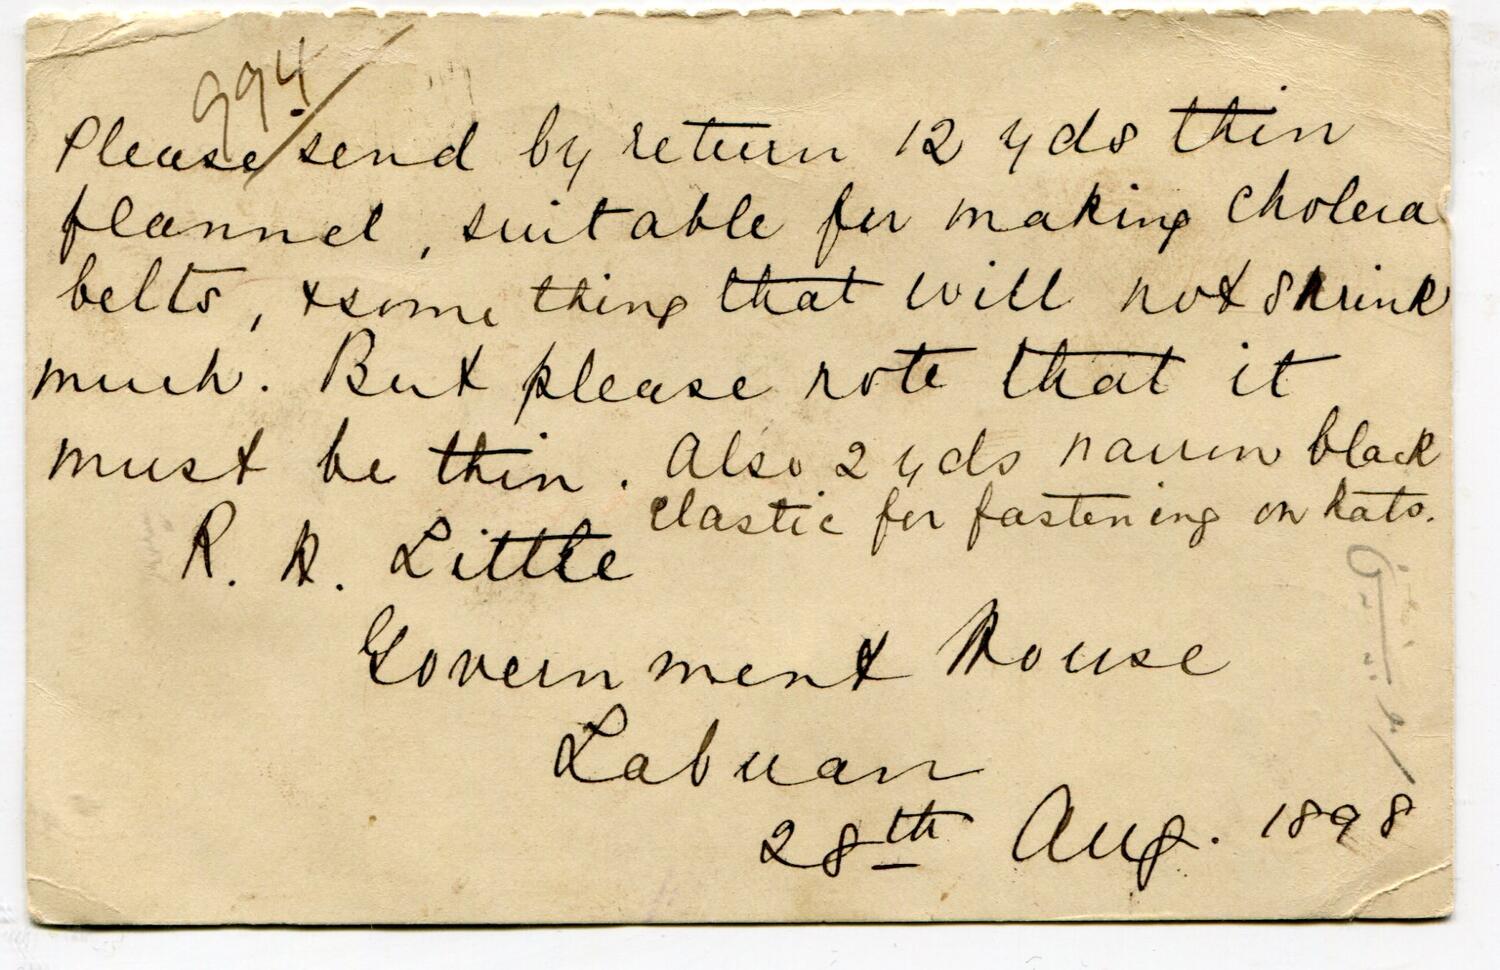 994
Please send by return 12 yds thin
flannel, suitable for making cholera
belts, & some thing that will not shrink
much. But please note that it
must be thin. Also 2 yds narrow black
elastic for fastening on hats.
R. H. Little
Government House
Labuan
28th Aug. 1898